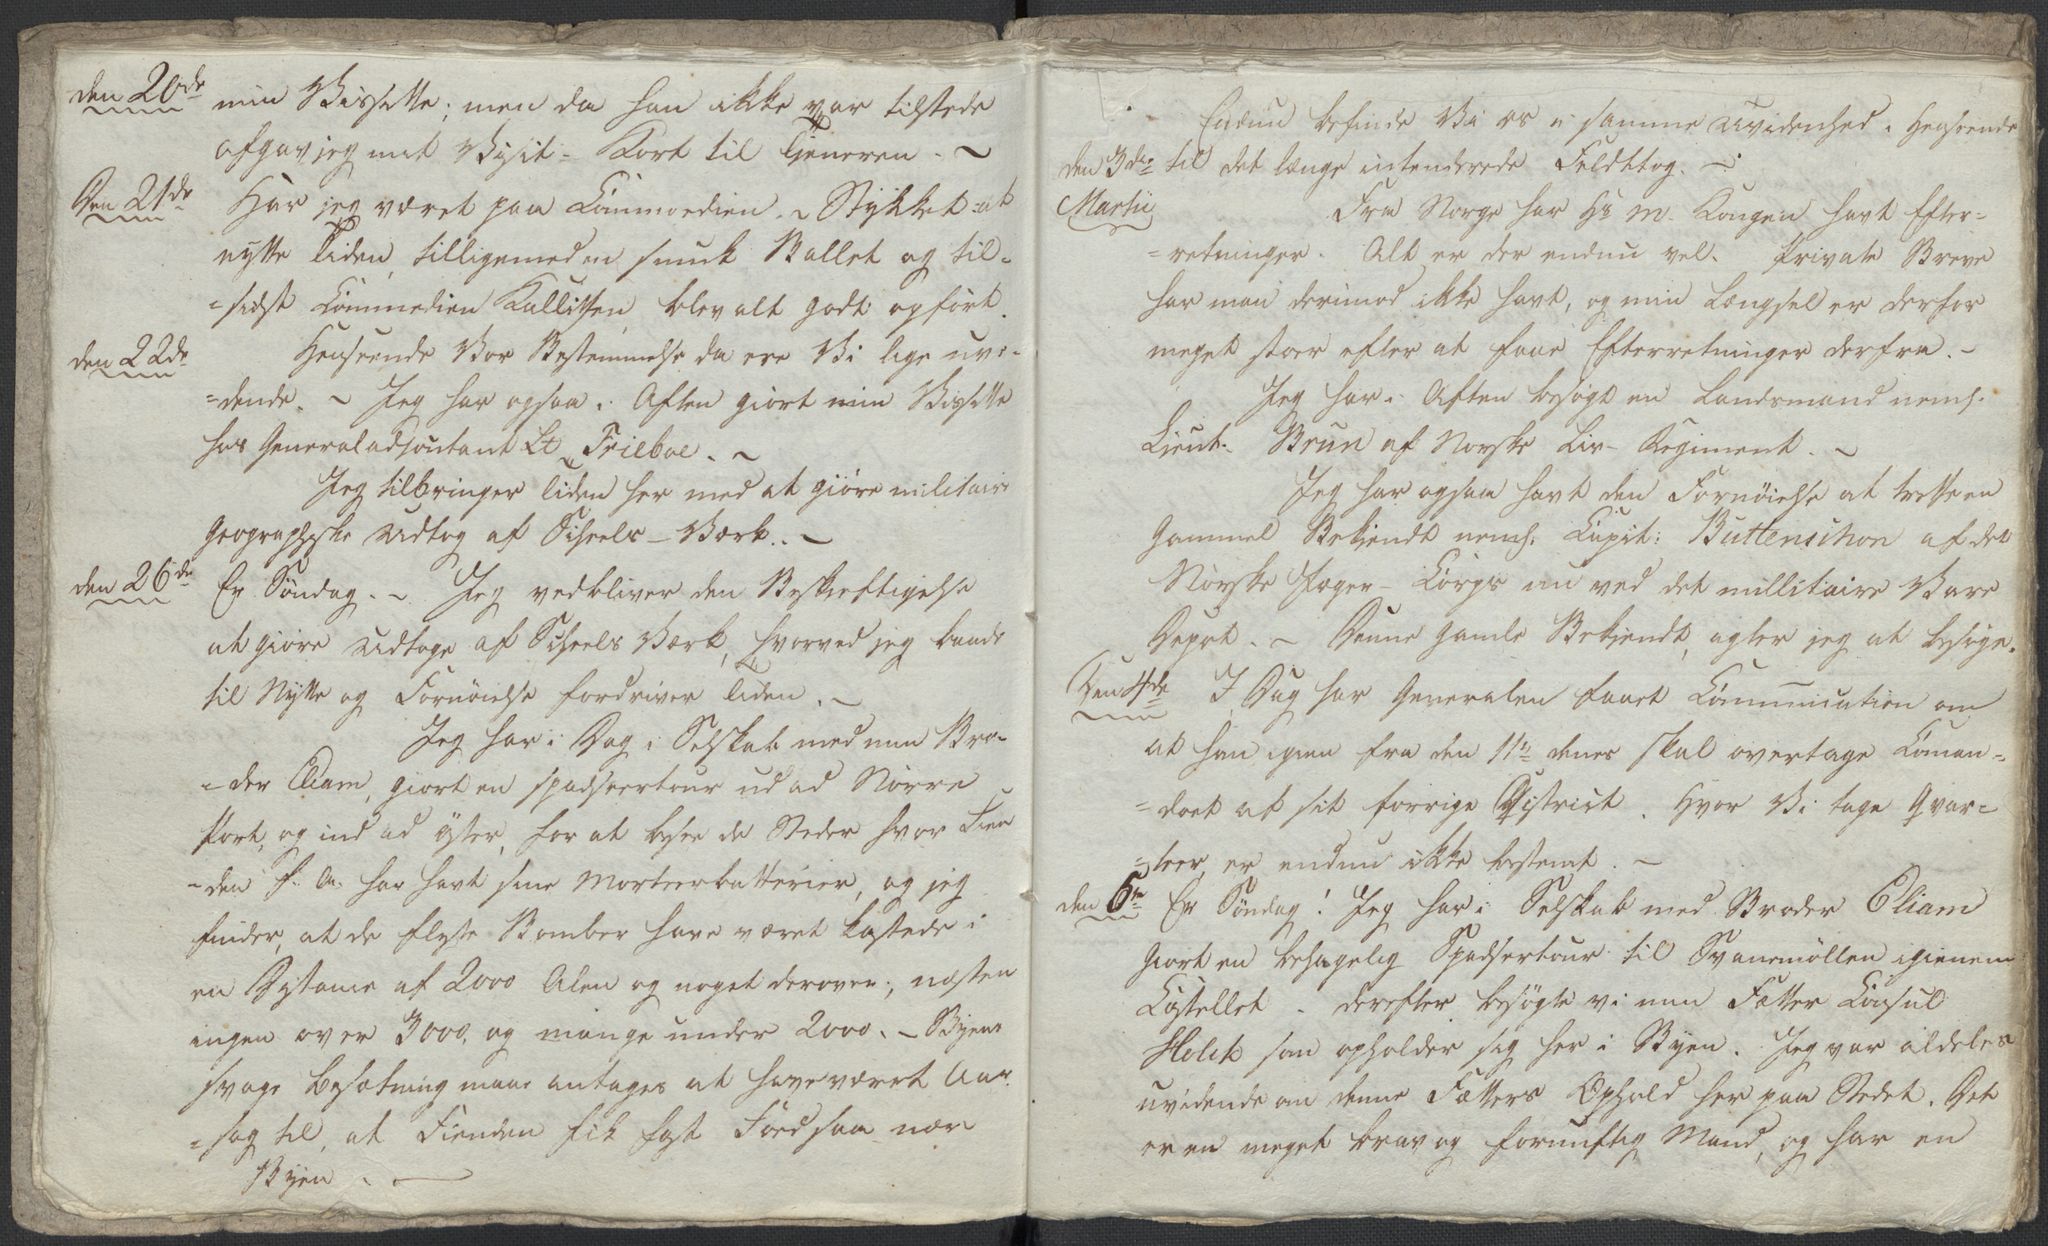 den 20de min Vissitte; men da han ikke var tilstede
afgav jeg mit Visit- Kort til Tjeneren. ~
Den 21de Har jeg været paa Commoedien. ~ Stykket: at
nytte Tiden, tilligemed en smuk Ballet og til-
=sidst Commedien Kallissen, blev alt godt opført.
den 22de Henseende Vor Bestemmelse da ere Vi lige uvi-
=dende. ~ Jeg har ogsaa i Aften giort min Vissitte
hos Generaladjoutant Lt Trieboe. ~
Jeg tilbringer Tiden her med at giøre militaire
Geographiske Udtog af Scheels-Værk. ~
den 26de Er Søndag. ~ Jeg vedbliver den Beskieftigelse
at giøre Udtoge af Scheels Værk, hvorved jeg baade
til Nytte og Fornøielse fordriver Tiden. ~
Jeg har i Dag i Selskab med min Bro-
=der Eliam, giort en spadseertour ud ad Nørre
Port, og ind ad Øster, for at besee de Steder hvor Fien
=den f: A: har havt sine Morteerbatterier, og jeg
finder, at de fleste Bomber have været kastede i
en Distance af 2000 Alen og noget derover; næsten
ingen over 3000, og mange under 2000. – Byens
svage Besætning maae antages at have været Aar-
=sag til, at Fienden fik fast Foed saa nær
Byen. ~
Endnu befinde Vi os i samme Uvidenhed i Henseende
den 3die til det længe intenderede Feldttog. ~
Martii Fra Norge har Hs M. Kongen havt Efter-
=retninger. Alt er der endnu vel. Private Breve
har man derimod ikke havt, og min Længsel er derfor
meget stoer efter at faae Efterretninger derfra. ~
Jeg har i Aften besøgt en Landsmand neml.
Lieut. Brun af Norske Liv- Regiment. ~
Jeg har ogsaa havt den Fornøielse at treffe en
Gammel Bekjendt neml. Capit: Buttenschon af det
Norske Jæger- Corps nu ved det millitaire Vare
Depot. ~ Denne gamle Bekjendt, agter jeg at besøge.
Den 4de I Dag har Generalen faaet Communication om
at han igien fra den 11te denes skal overtage Coman-
=doet af sit forrige District. Hvor Vi tage Qvar-
=teer, er endnu ikke bestemt. ~
den 6te Er Søndag! Jeg har i Selskab med Broder Eliam
Giort en behagelig Spadsertour til Svanemøllen igienem
Castellet. Derefter besøgte vi min Fætter Consul
Holck som opholder sig her i Byen. Jeg var aldeles
uvidende om denne Fætters Ophold her paa Stedet. Det
er en meget brav og fornuftig Mand, og har en